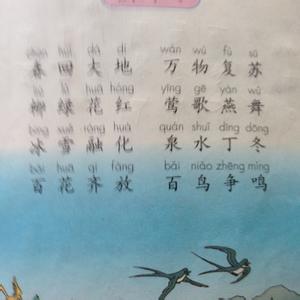 chūn huí dà dì wàn wù fù sū
春回大地 万物复苏
liǔ lǜ huā hóng yīng gē yàn wǔ
柳绿花红 莺歌燕舞
bīng xuě róng huà quán shuǐ dīng dōng
冰雪融化 泉水丁冬
bǎi huā qí fàng bǎi niǎo zhēng míng
百花齐放 百鸟争鸣